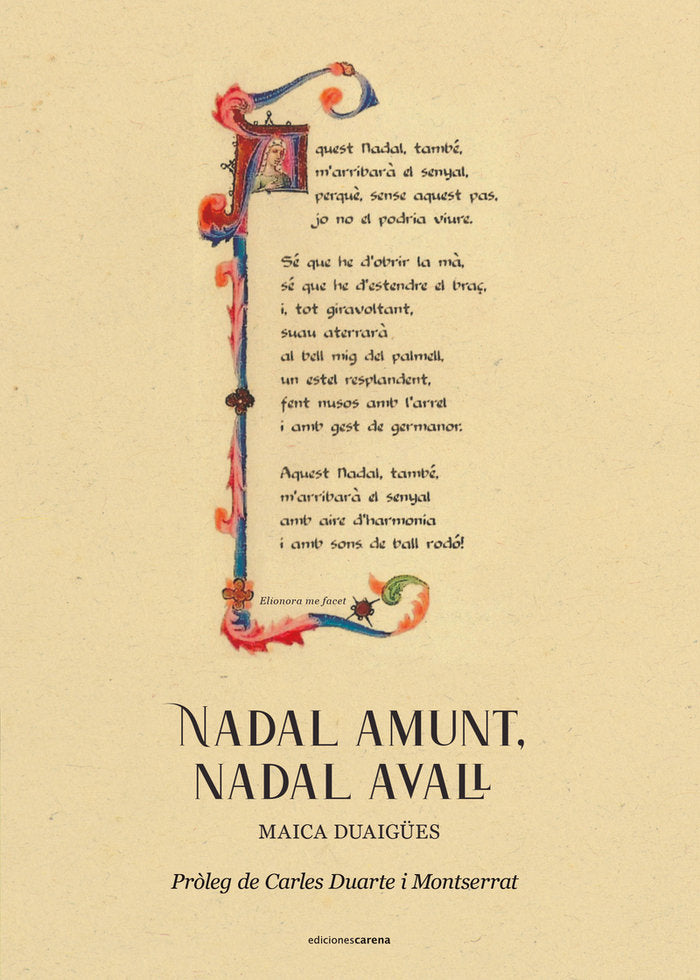 Aquest Nadal, també,
m'arribarà el senyal,
perquè, sense aquest pas,
jo no el podria viure.
Sé que he d'obrir la mà,
sé que he d'estendre el braç,
i, tot giravoltant,
suau aterrarà
al bell mig del palmell,
un estel resplandent,
fent nusos amb l'arrel
i amb gest de germanor.
Aquest Nadal, també,
m'arribarà el senyal
amb aire d'harmonia
i amb sons de ball rodó!
Elionora me facet
NADAL AMUNT,
NADAL AVALL
MAICA DUAIGÜES
Pròleg de Carles Duarte i Montserrat
edicionescarena